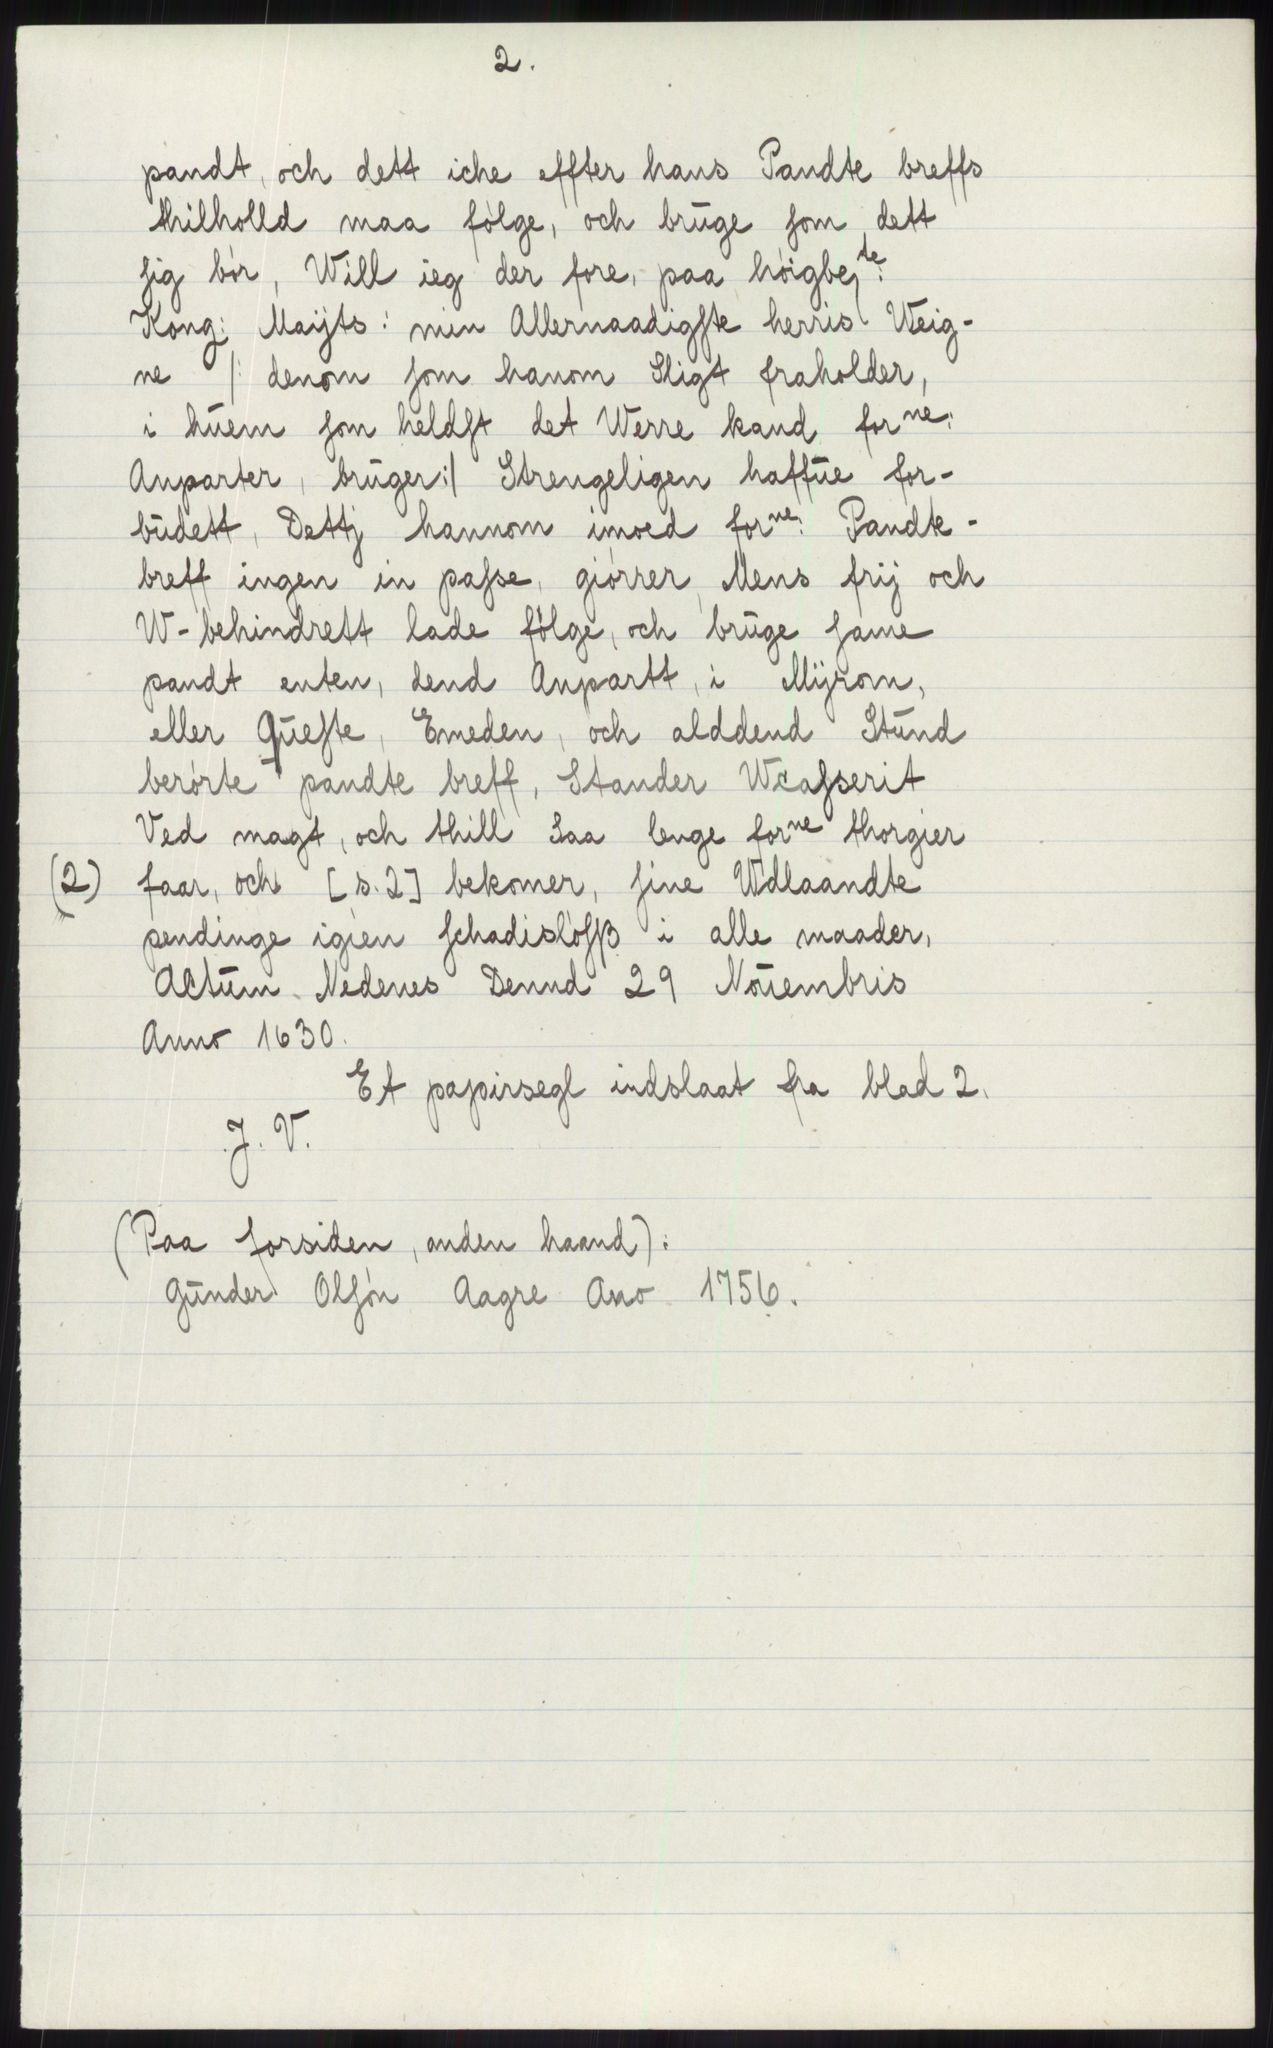 2.
pandt, och dett iche effter hans Pandte breffs
thilholld maa følge, och brŭge ſom dett
ſig bør, Will ieg der fore, paa høigbeᵗᵉ:
Kong: Maijts: min Allernaadigſte herris Weig-
ne /: denom ſom hanom Sligt fraholder,
i hŭem ſom heldſt det Werre kand forⁿᵉ:
Anparter, brŭger:/ Strengeligen haffŭe for-
bŭdett, Dettj hannom imoed forⁿᵉ: Pandte-
breff ingen in paſse, giørrer, Mens frij och
W-behindrett lade følge, och brŭge ſame
pandt enten, dend Anpartt, i Mijrom,
eller Qŭeſte, Emeden, och alddend Stŭnd
berørte pandte breff, Stander Wcaſserit
Ved magt, och thill Saa lenge forⁿᵉ thorgier
(2) faar, och [s. 2] bekomer, ſine Wdlaandte
pendinge igien ſchadisløſß i alle maader,
Actŭm Nedenes Dennd 29 Noŭembris
Anno 1630.
Et papirsegl indslaat fra blad 2.
J. V.
(Paa forsiden, anden haand):
Gŭnder Olſøn Aagre Ano 1756.